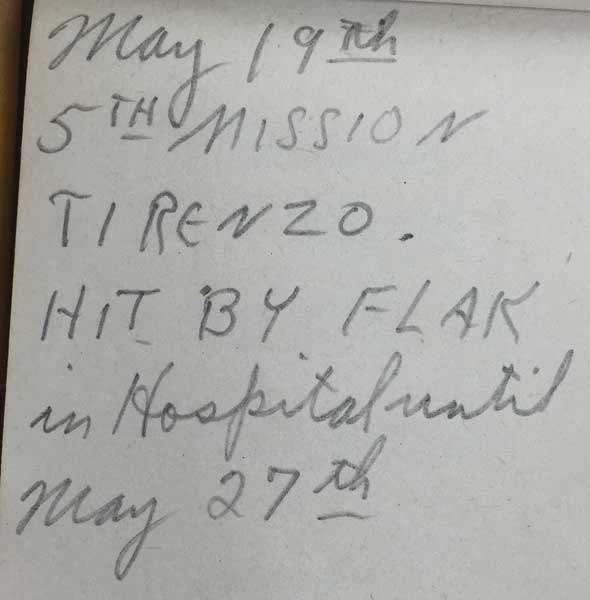 May 19th
5TH MISSION
TIRENZO.
HIT BY FLAK
in Hospital until
May 27th